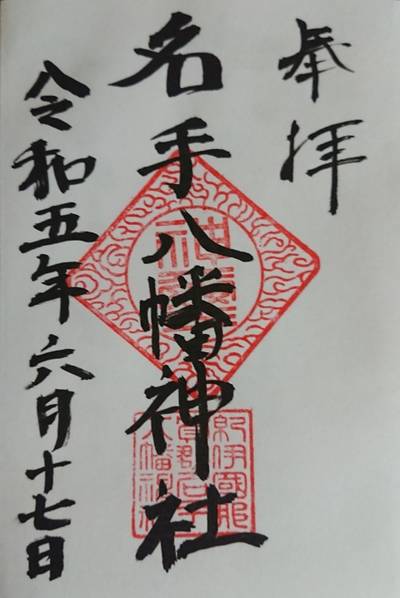 奉拝
名手八幡神社
令和五年六月十七日